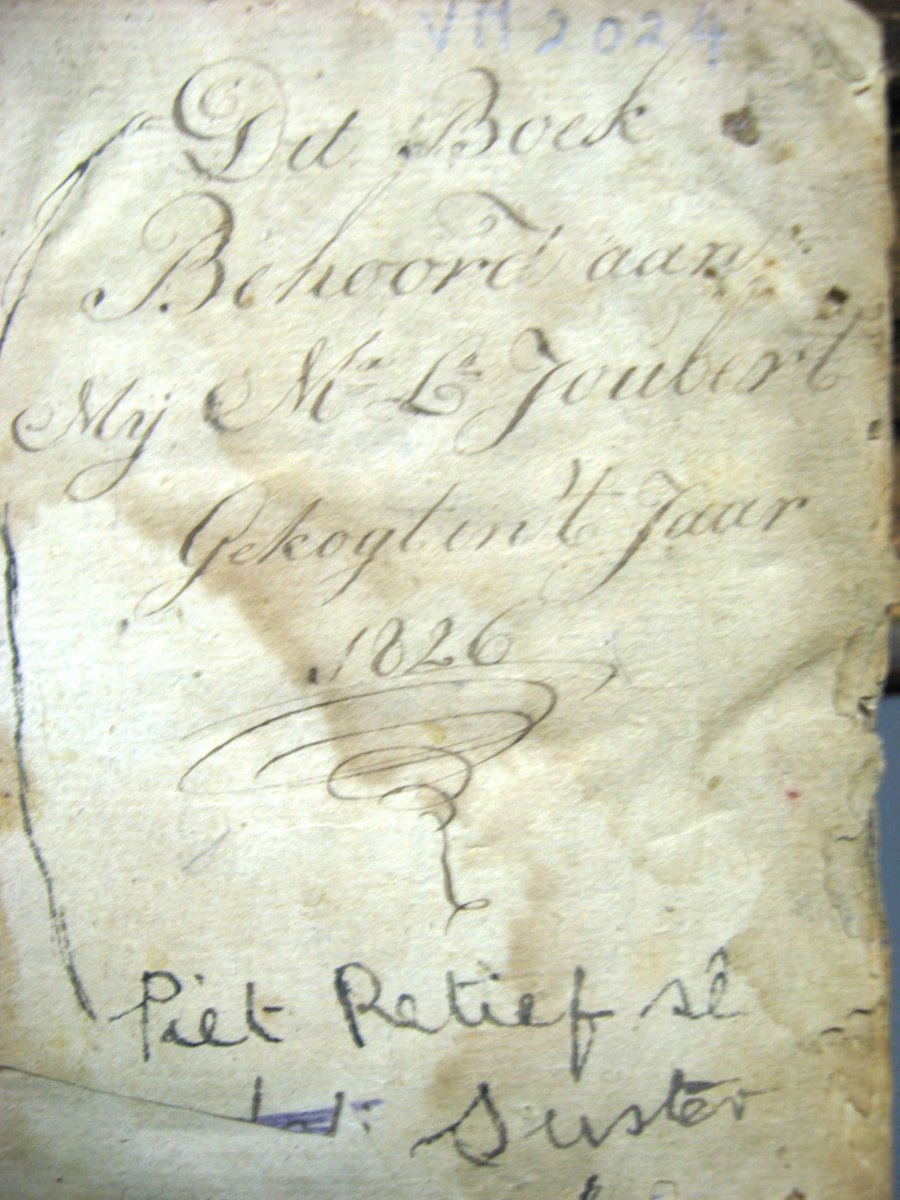 VM 2024
Dit Boek
Behoord aan
Mij Mr Ls Joubert
Gekogt in 't Jaar
1826
Piet Retief sê
Suster